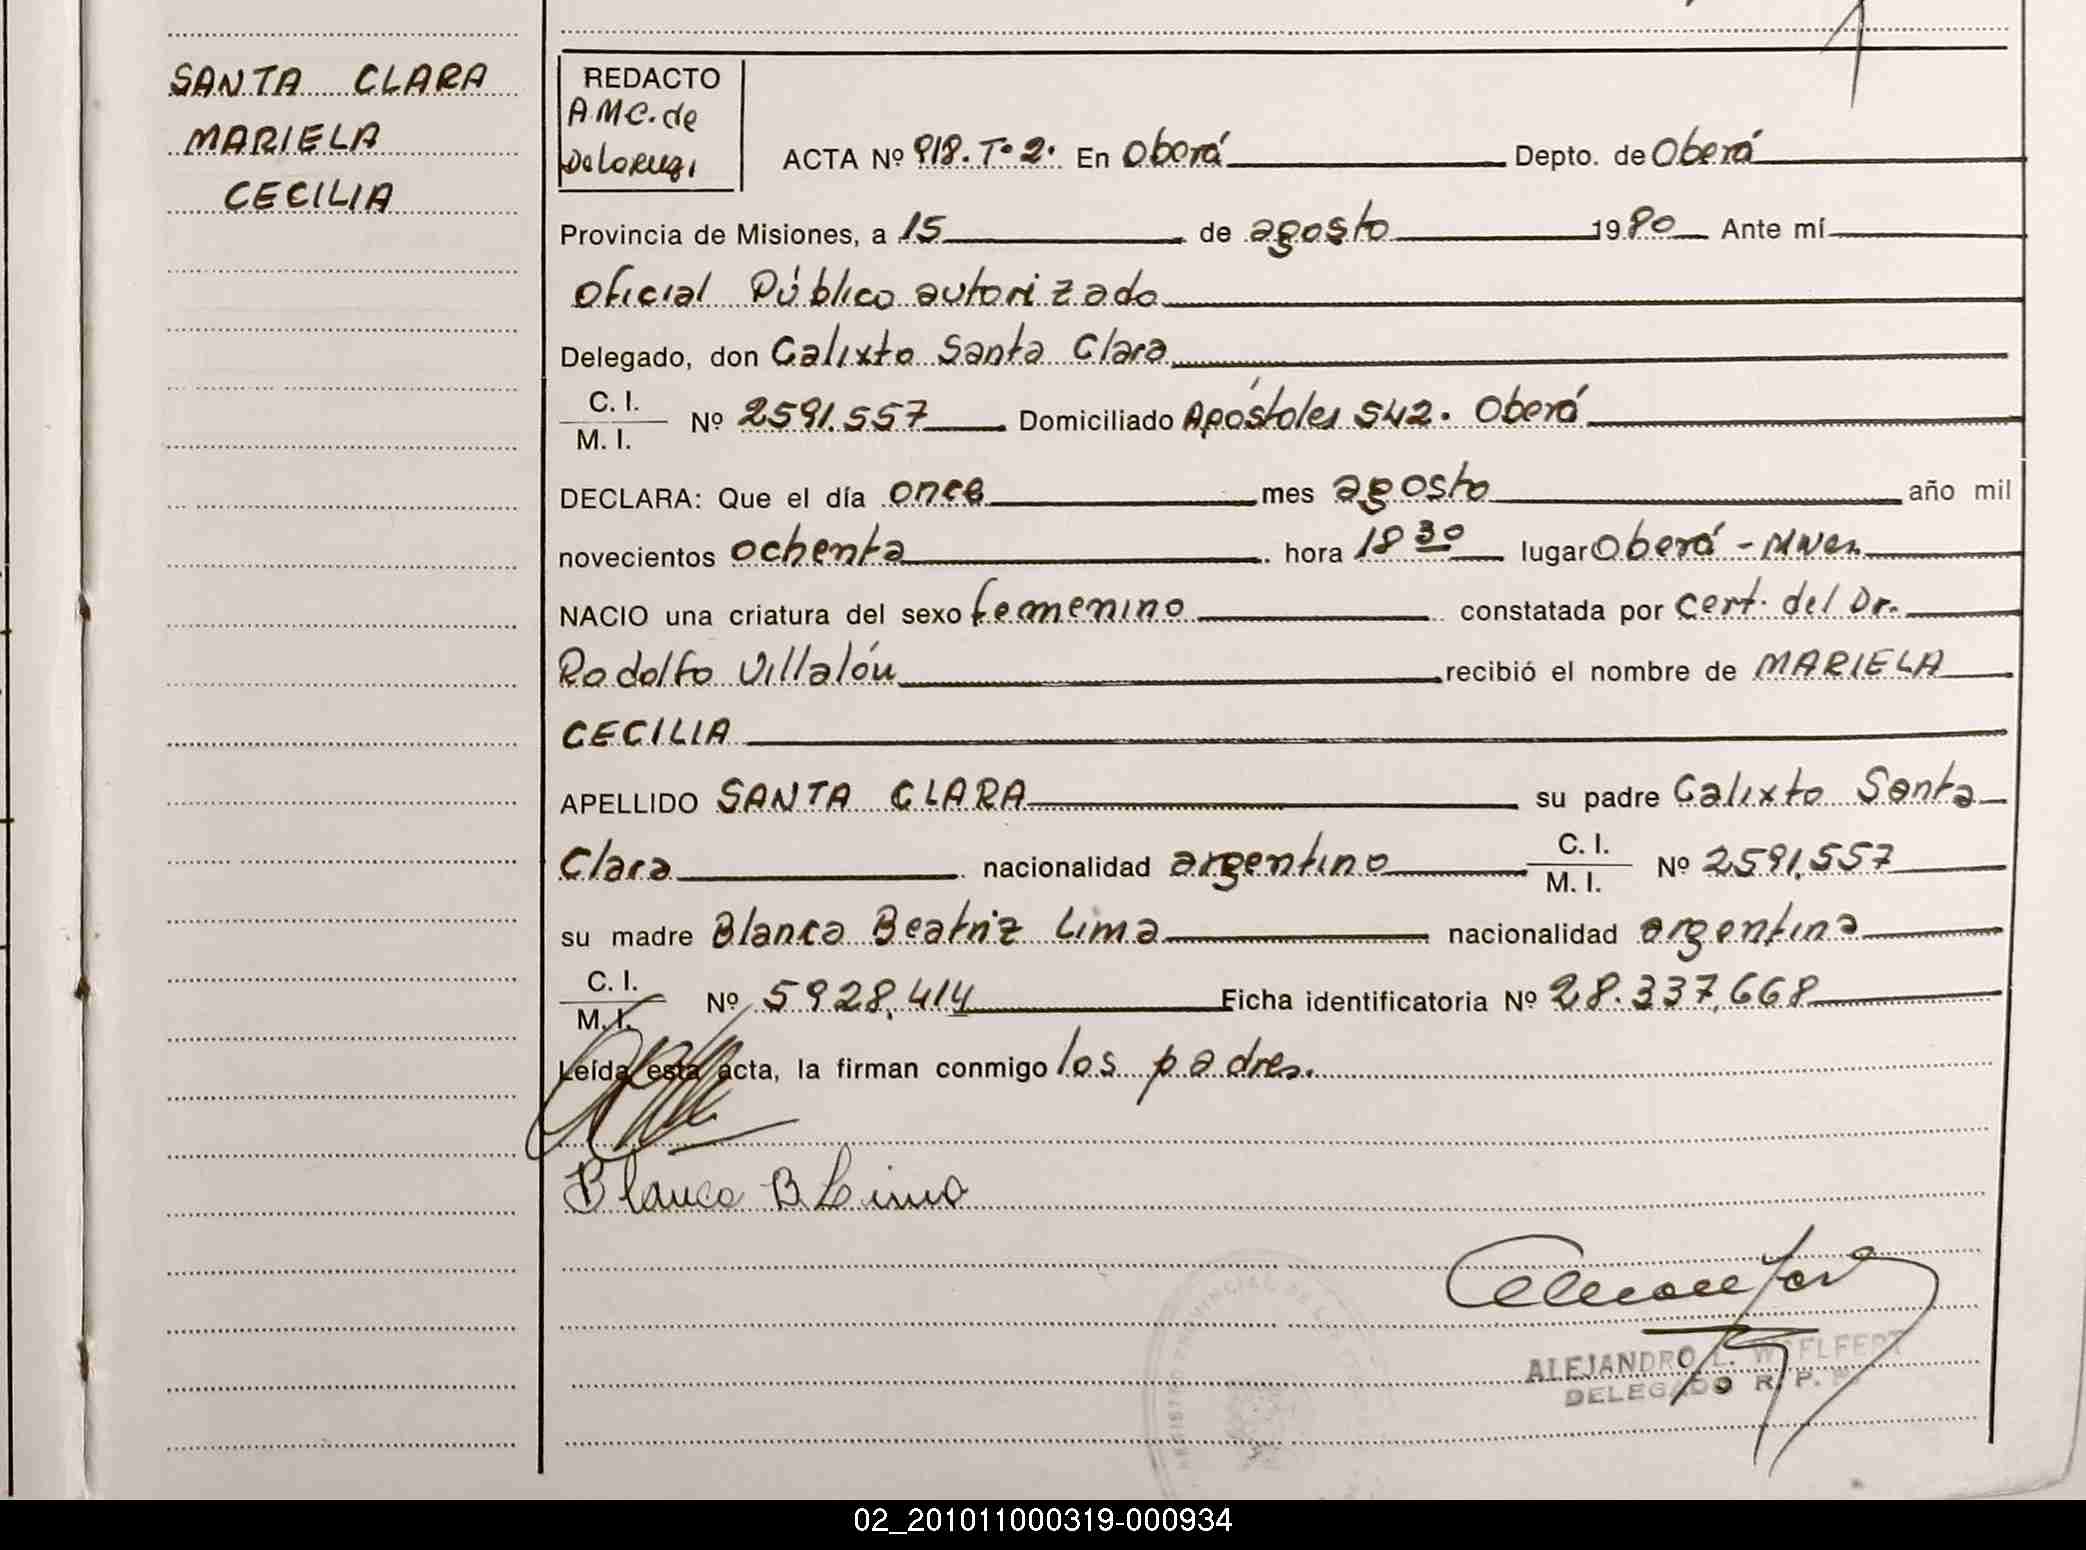 SANTA CLARA
MARIELA
CECILIA
REDACTO
A.M.C. de
ACTA Nº 918. Tº 2. En Oberá Depto. de Oberá
Provincia de Misiones, a 15 de agosto 1980 Ante mí
Oficial Público autorizado
Delegado, don Calixto Santa Clara
C. I.
M. I. Nº 2591.557 Domiciliado Apóstoles 542. Oberá
DECLARA: Que el día once mes agosto año mil
novecientos ochenta hora 18 30 lugar Oberá - Mnes.
NACIO una criatura del sexo femenino constatada por cert. del Dr.
Rodolfo Villalón recibió el nombre de MARIELA
CECILIA
APELLIDO SANTA CLARA su padre Calixto Santa
Clara nacionalidad argentino C. I. M. I. Nº 2591.557
su madre Blanca Beatriz Lima nacionalidad argentina
C. I.
M. I. Nº 5928.414 Ficha identificatoria Nº 28.337.668
Leída esta acta, la firman conmigo los padres.
Blanca B Lima
REGISTRO PROVINCIAL DE LAS
ALEJANDRO L. WELFERT
DELEGADO R. P.
02_201011000319-000934